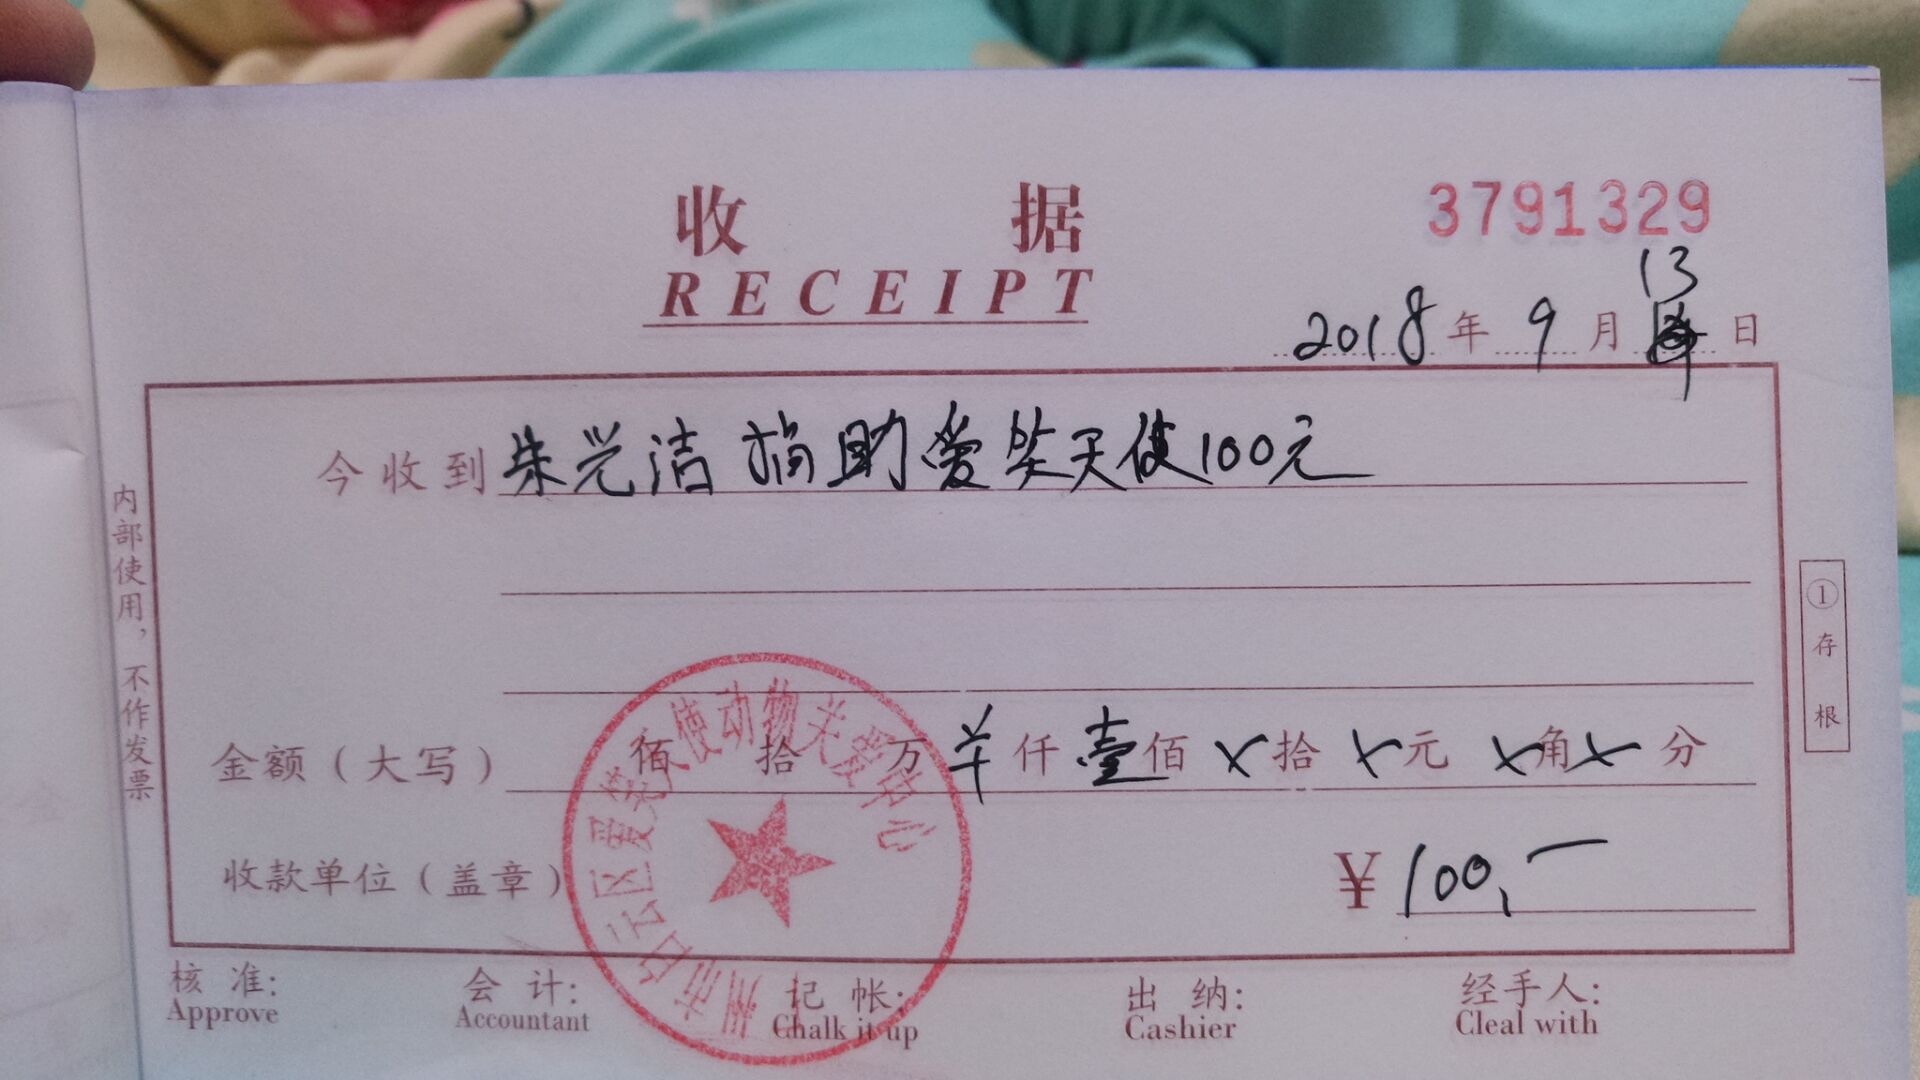 收 据
3791329
RECEIPT
13
2018年9月 日
今收到朱光洁捐助爱笑天使100元
内部使用，不作发票
①存根
金额（大写） 佰 拾 万 羊仟壹佰 ×拾 ×元 ×角× 分
收款单位（盖章） ¥100,一
州市白云区爱笑天使动物关爱中心
核 准: 会 计: 记 帐: 出 纳: 经手人:
Approve Accountant Chalk it up Cashier Cleal with